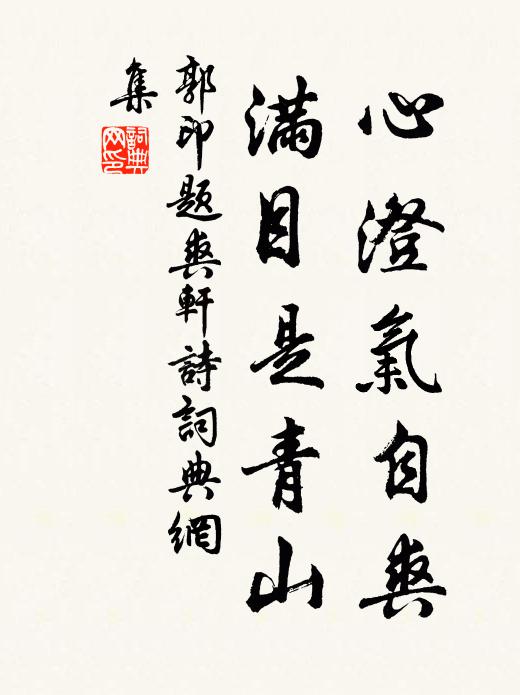 心澄氣自爽
滿目是青山
郭印題爽軒詩詞典網
集
詞典
网印